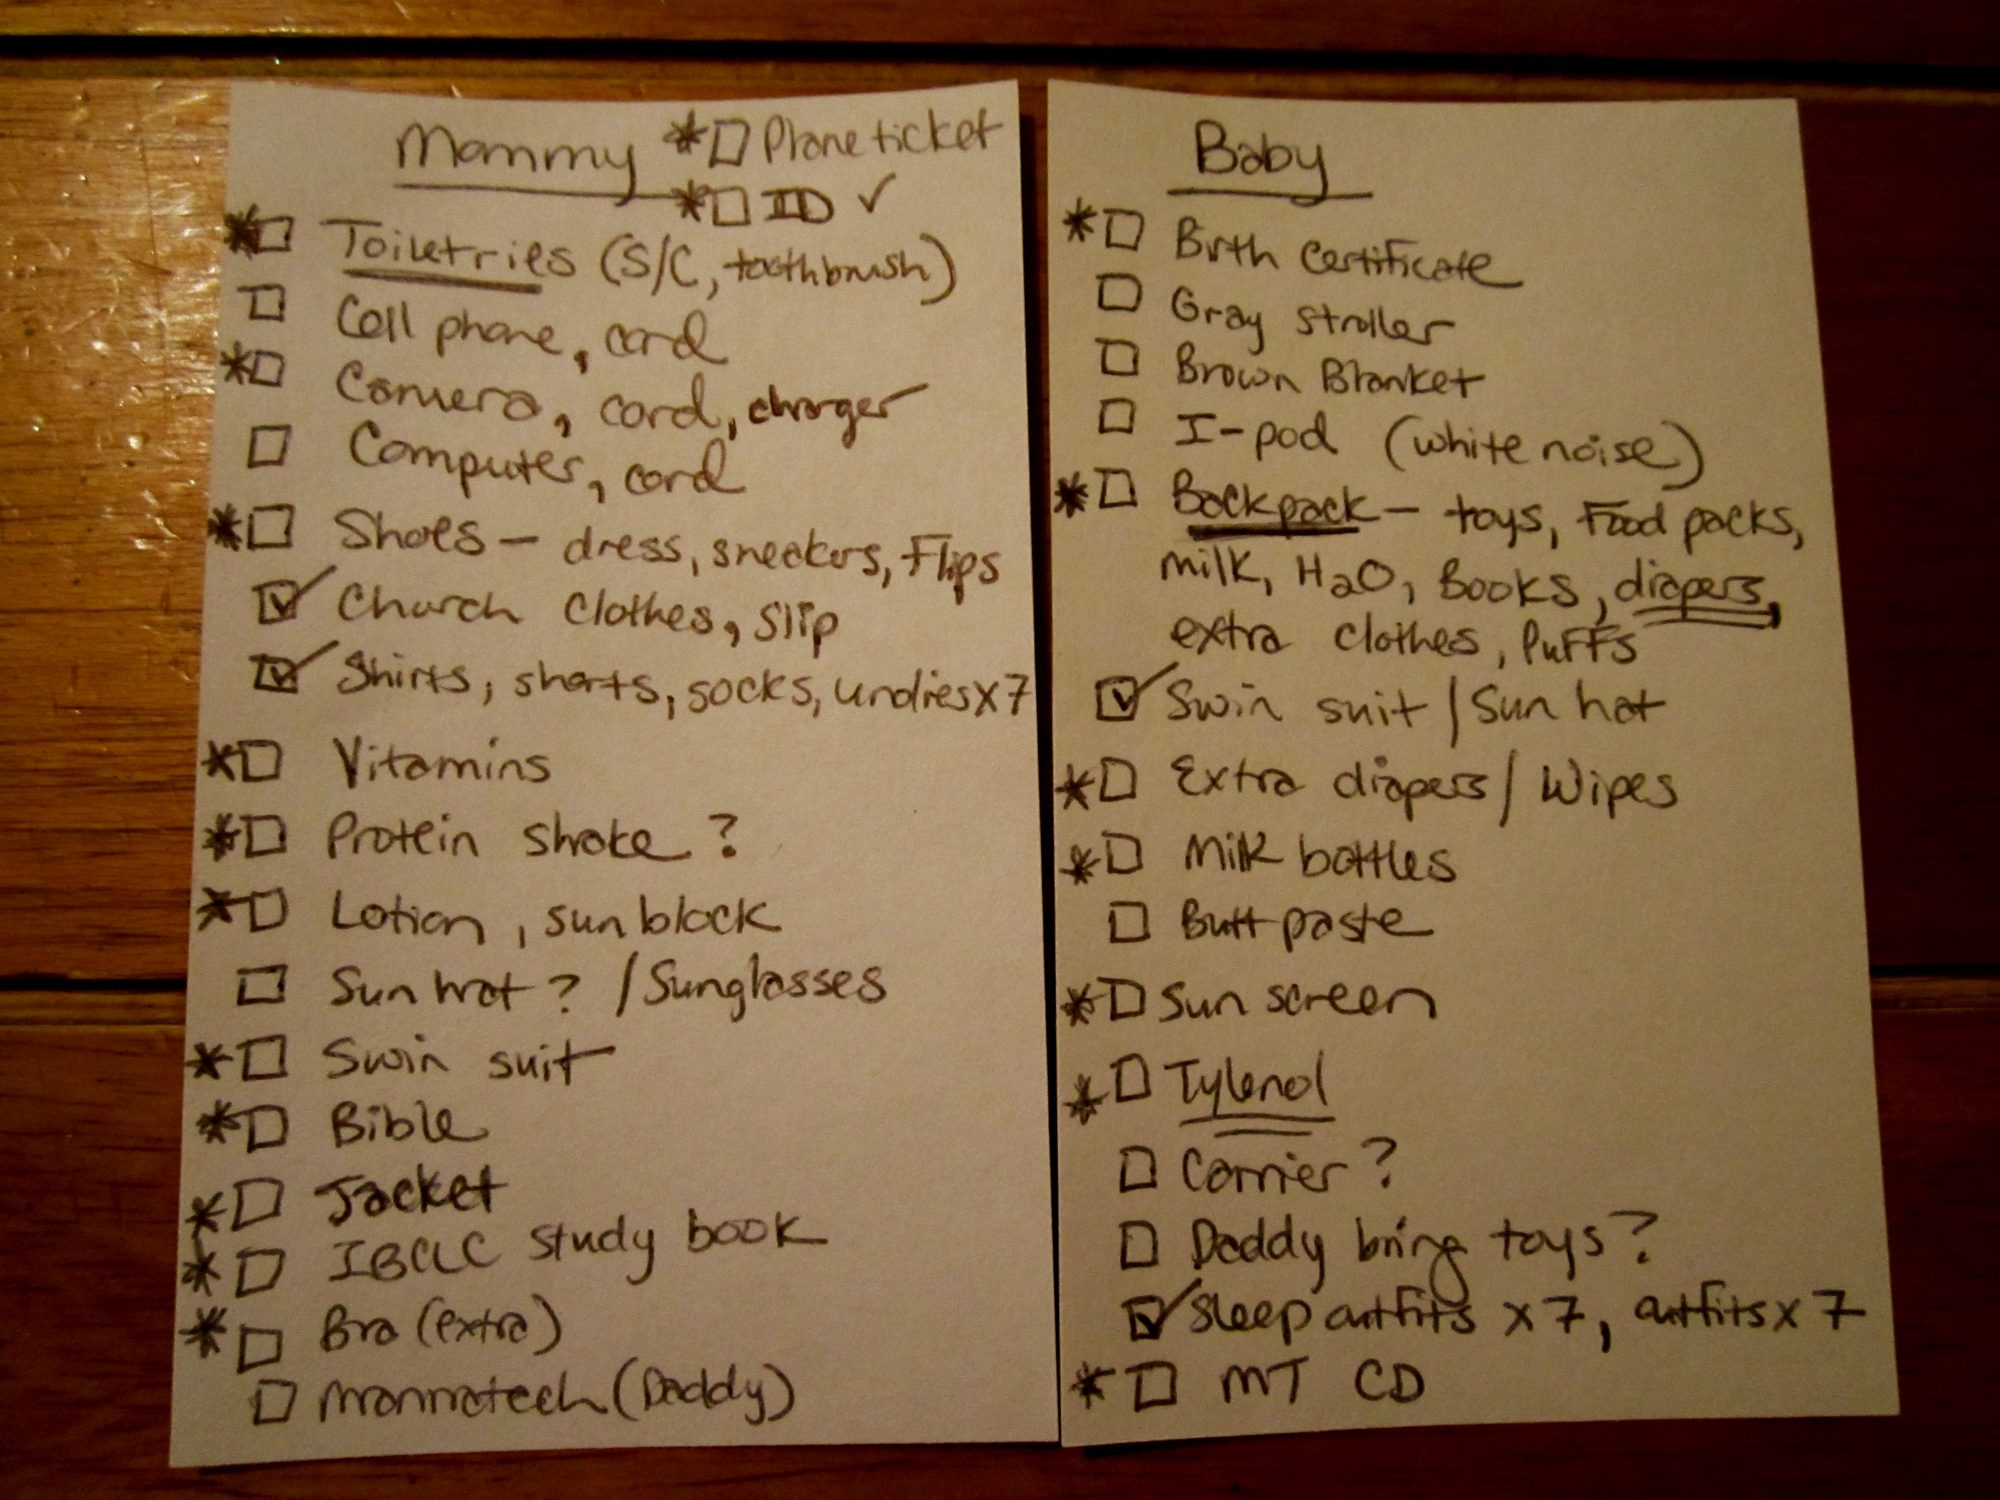 Mommy
* ☐ Plane ticket
* ☐ ID ✓
* ☐ Toiletries (S/C, toothbrush)
☐ Cell phone, cord
* ☐ Camera, cord, charger
☐ Computer, cord
* ☐ Shoes - dress, sneakers, Flips
☑ Church clothes, slip
☑ Shirts, shorts, socks, undies x 7
* ☐ Vitamins
* ☐ Protein shake?
* ☐ Lotion, sunblock
☐ Sun hat? / Sunglasses
* ☐ Swim suit
* ☐ Bible
* ☐ Jacket
* ☐ IBCLC study book
* ☐ Bra (extra)
☐ Mannatech (Daddy)
Baby
* ☐ Birth certificate
☐ Gray stroller
☐ Brown Blanket
☐ I-pod (white noise)
* ☐ Backpack - toys, Food packs,
milk, H2O, Books, diapers,
extra clothes, puffs
☑ Swim suit / Sun hat
* ☐ Extra diapers / Wipes
* ☐ Milk bottles
☐ Butt paste
* ☐ Sun screen
* ☐ Tylenol
☐ Carrier?
☐ Daddy bring toys?
☑ Sleep outfits x 7, outfits x 7
* ☐ MT CD